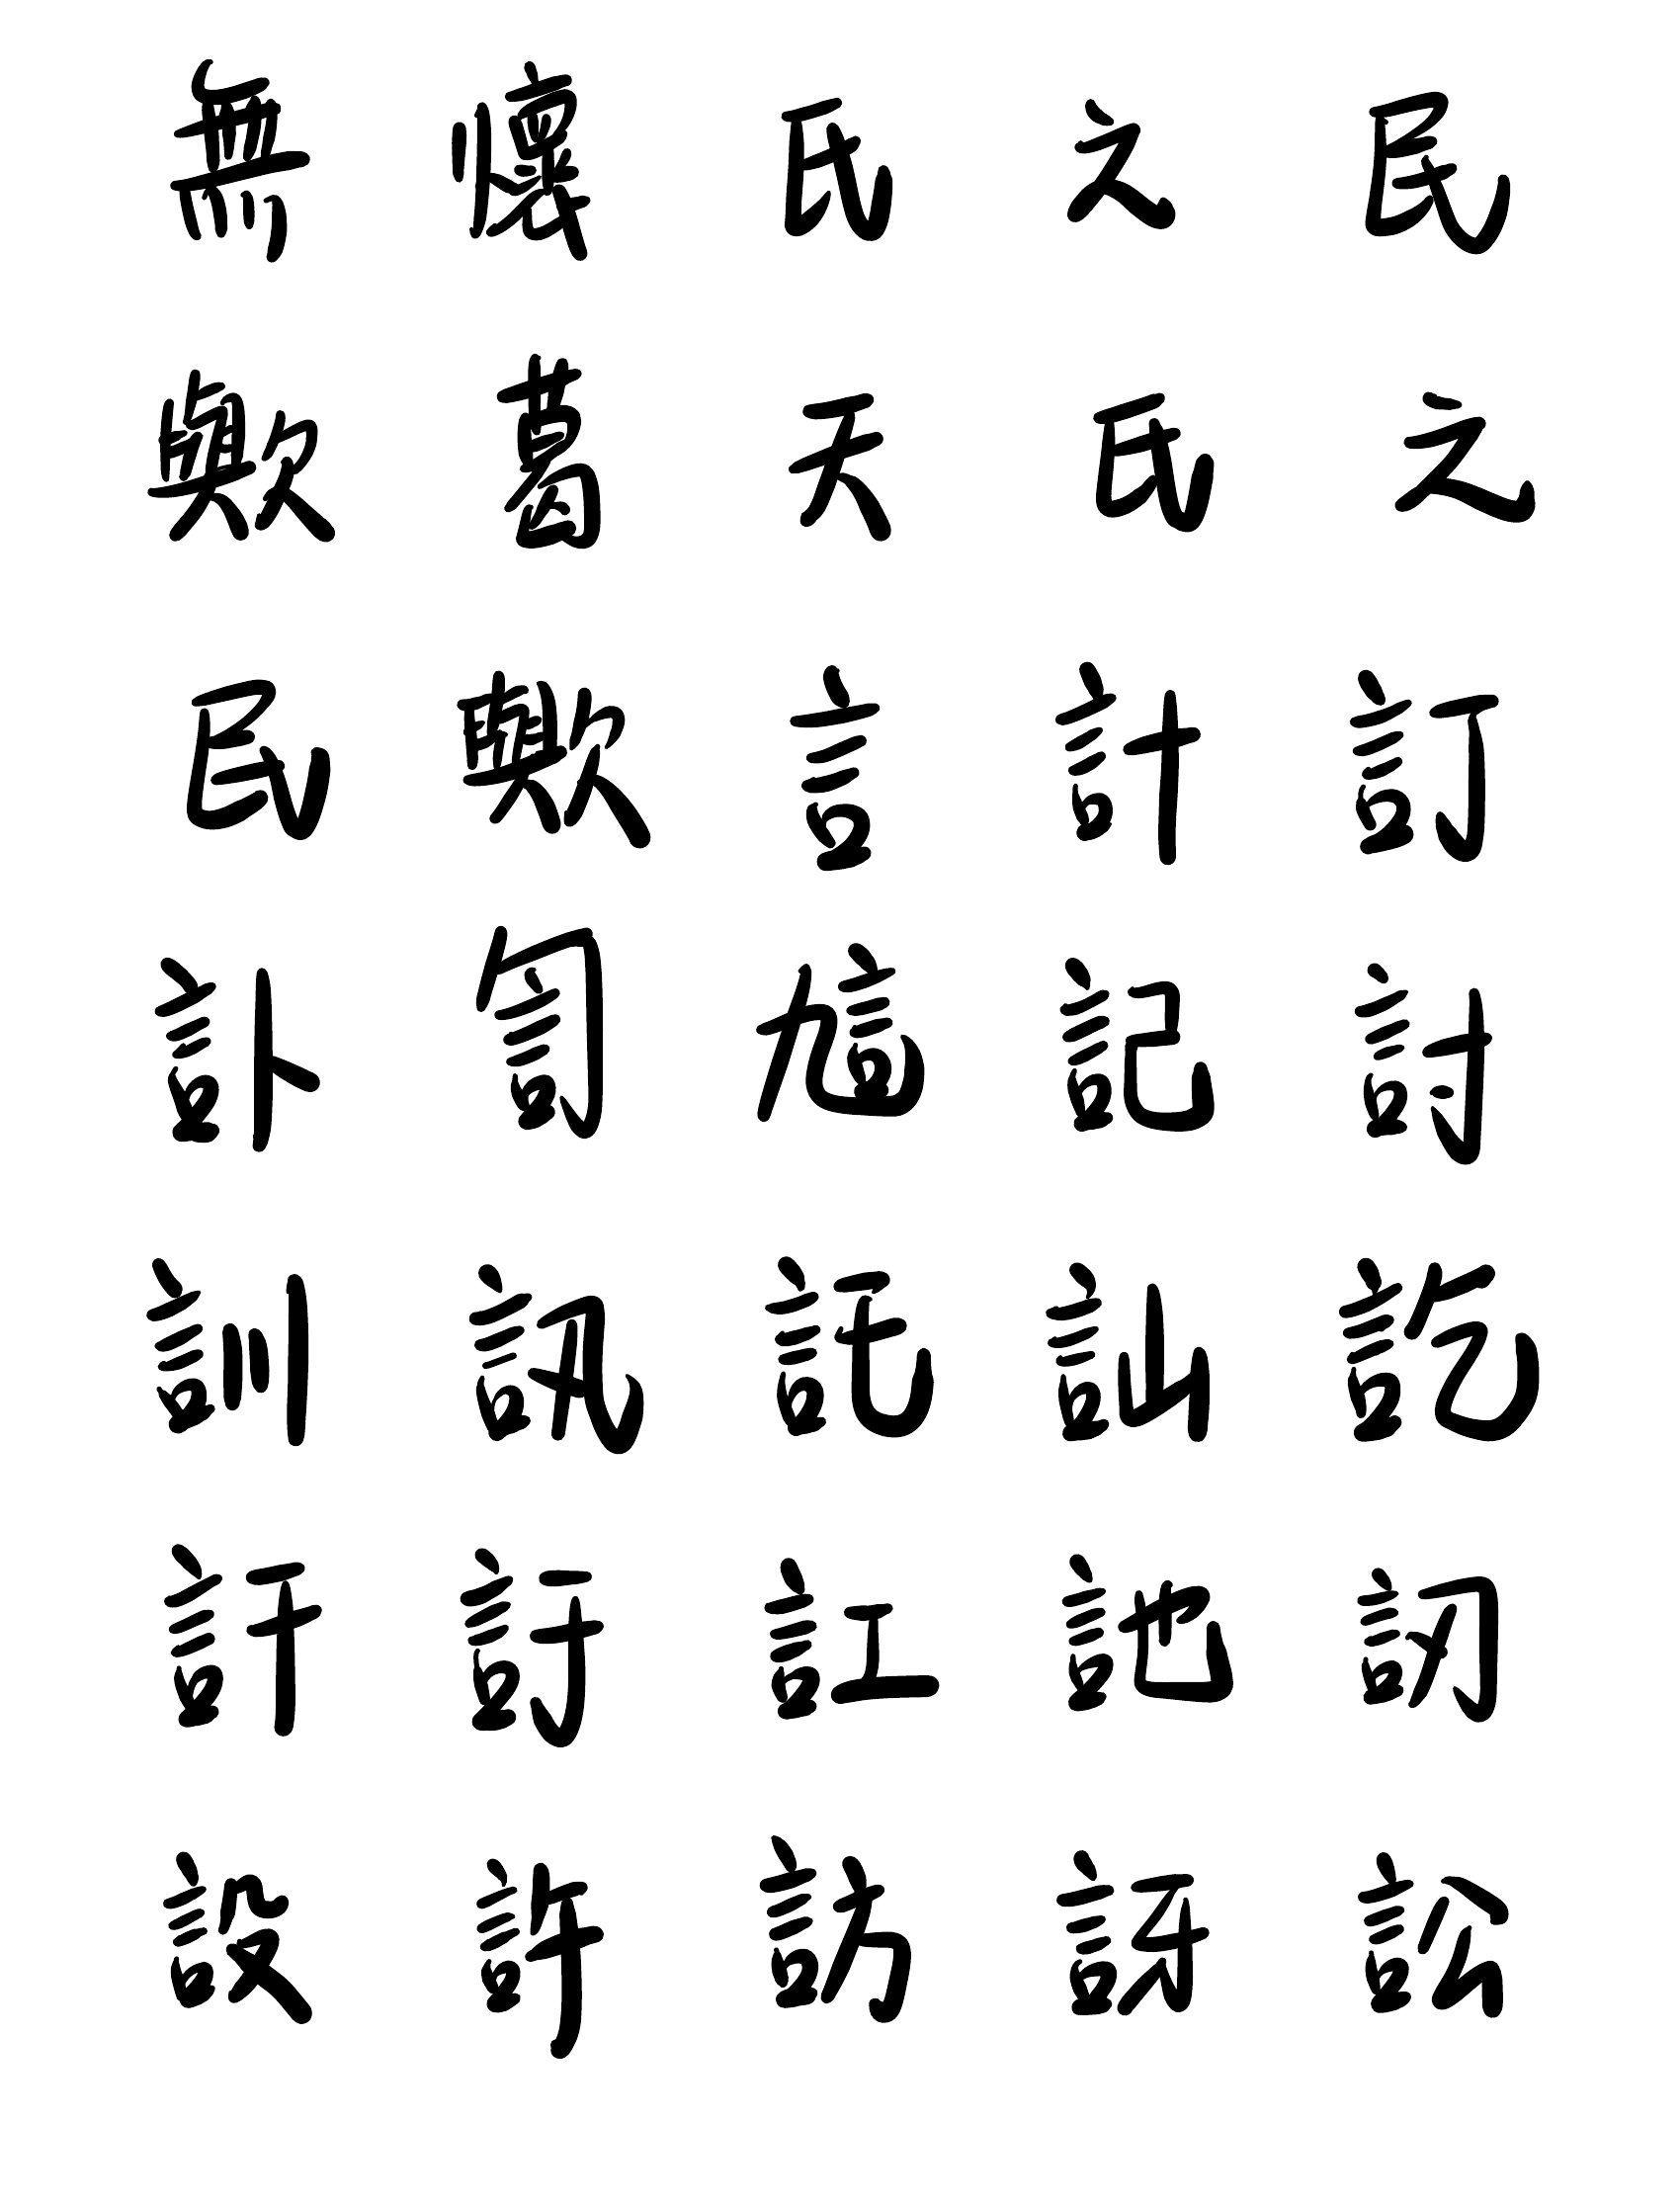 無懷氏之民
歟葛天氏之
民歟言計訂
訃訇訄記討
訓訊託訕訖
訐訏訌訑訒
設許訪訝訟